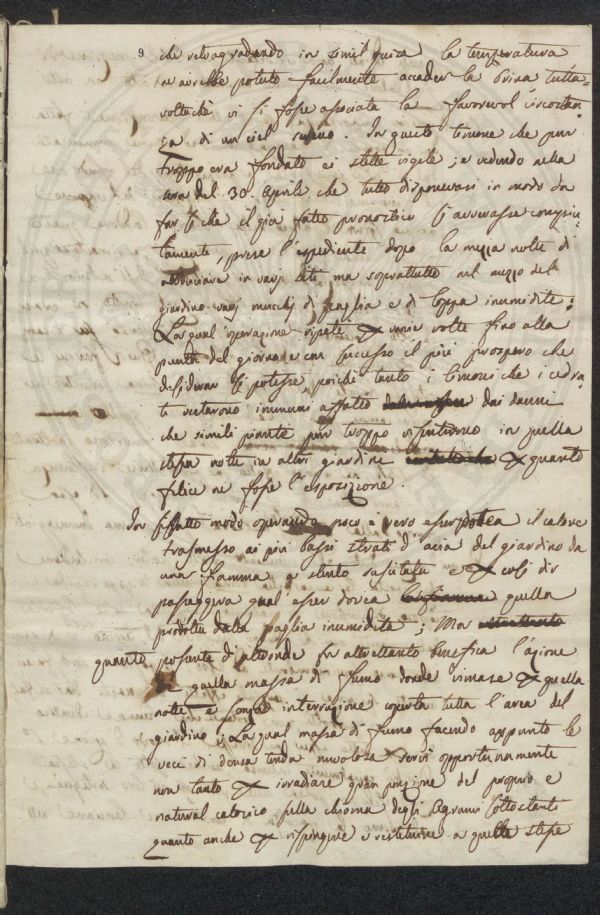 9 che retrogradando in simil guisa la temperatura
ne avrebbe potuto facilmente accader la brina tutta-
voltachè vi si fosse associata la favorevol circostan-
za di un ciel sereno. In questo timore che pur
troppo era fondato ei stette vigile; e vedendo nella
sera del 30. Aprile che tutto disponevasi in modo da
far sì che il già fatto pronostico si avverasse compiu-
tamente, prese l'espediente dopo la mezza notte di
abbruciare in varj siti ma soprattutto nel mezzo del
giardino varj mucchj di paglia e di loppa inumidite:
La qual operazione ripetè per varie volte fino alla
punta del giorno e con successo il più prospero che
desiderar si potesse, poichè tanto i limoni che i cedra-
ti restarono immuni affatto dai danni
che simili piante pur troppo risentirono in quella
stessa notte in altri giardini per quanto
felice ne fosse l'esposizione.
In siffatto modo operando poco è vero esser potea il calore
trasmesso ai più bassi strati d'aria del giardino da
una fiamma a stento suscitata e per così dir
passeggera qual esser dovea quella
prodotta dalla paglia inumidita; Ma
quanto possente d'altronde fu altrettanto benefica l'azione
di quella massa di fumo donde rimase per quella
notte e senza interruzione coperta tutta l'area del
giardino; La qual massa di fumo facendo appunto le
veci di densa tenda nuvolosa servì opportunamente
non tanto per irradiare gran porzione del proprio e
natural calorico sulla chioma degli Agrumi sottostanti
quanto anche per respingere e restituire a quelle stesse